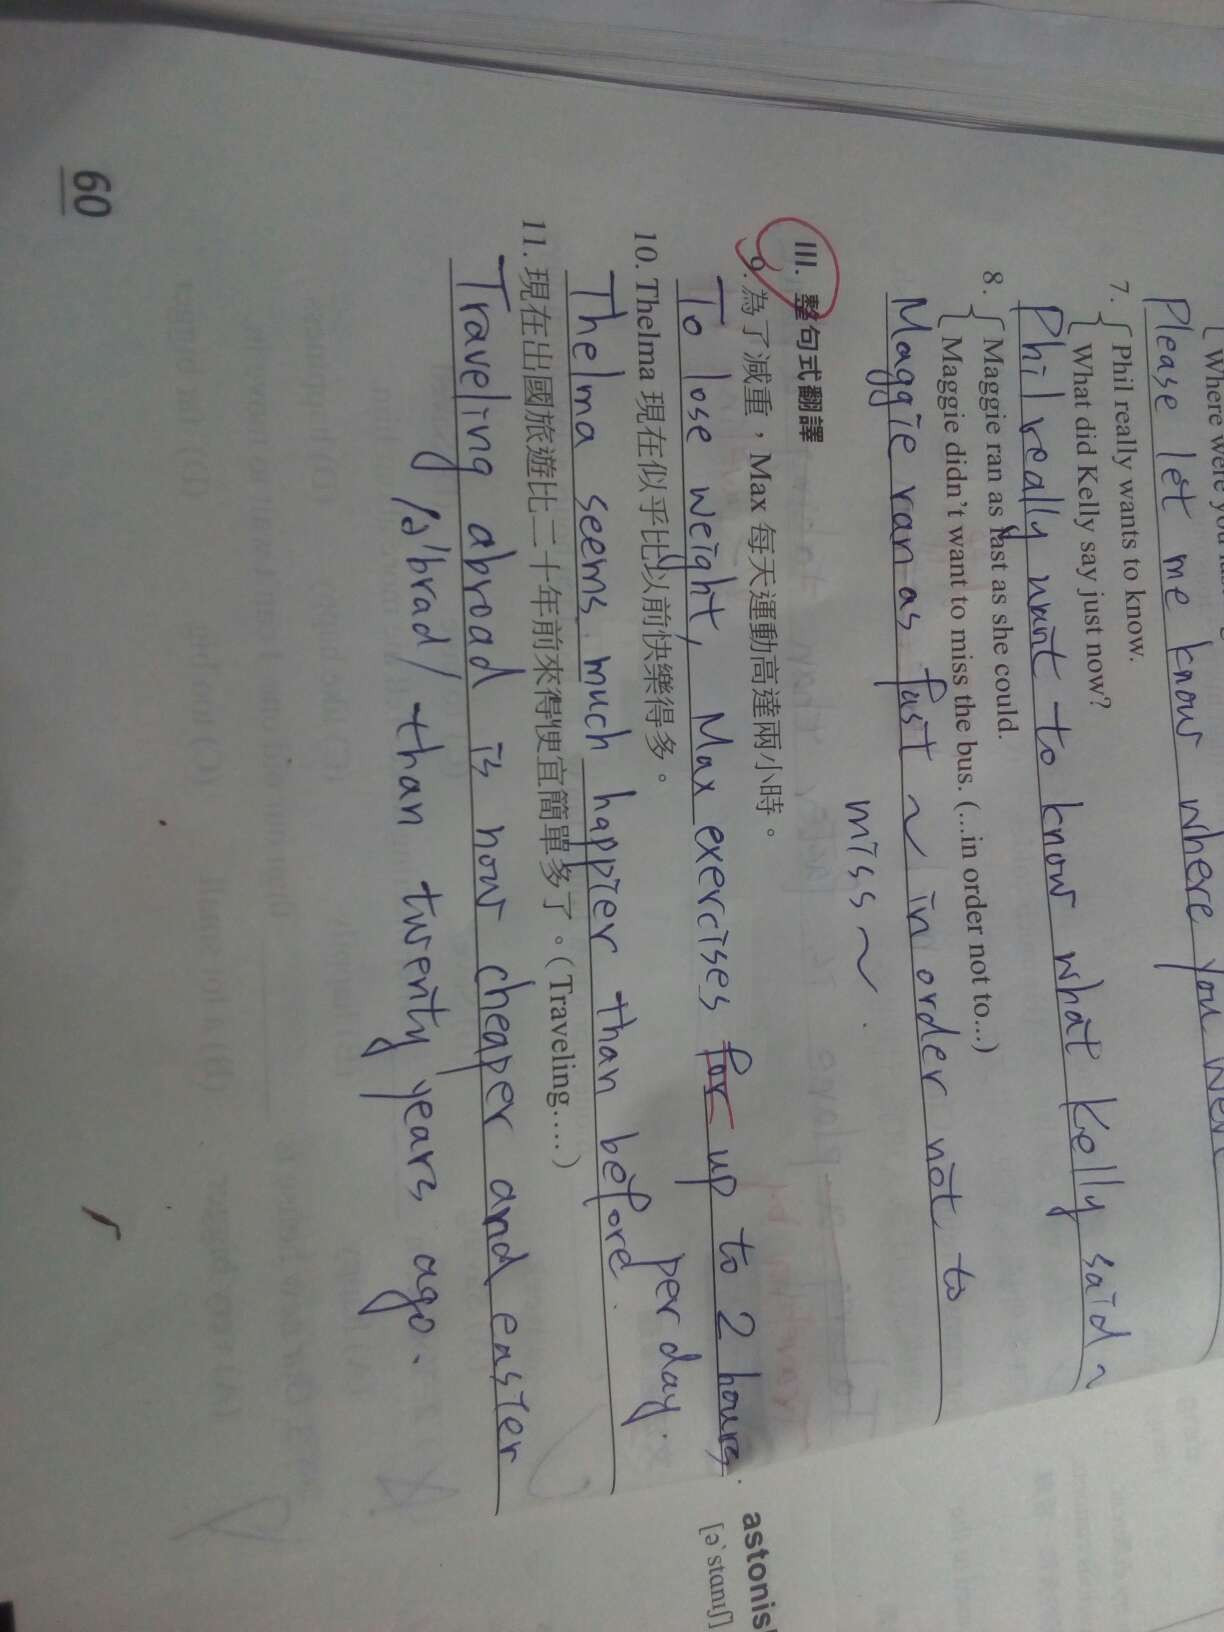 Where were you
Please let me know where you
7. Phil really wants to know.
What did Kelly say just now?
Phil really want to know what Kelly said ~
8. Maggie ran as fast as she could.
Maggie didn't want to miss the bus. (...in order not to...)
Maggie ran as fast ~ in order not to
miss ~.
III. 整句式翻譯
9. 為了減重，Max 每天運動高達兩小時。
To lose weight, Max exercises for up to 2 hours.
per day.
10. Thelma 現在似乎比以前快樂得多。
Thelma seems much happier than before.
11. 現在出國旅遊比二十年前來得便宜簡單多了。(Traveling....)
Traveling abroad is now cheaper and easier
/ə'brad/ than twenty years ago.
astonis
[ə`stɑnɪʃ]
60